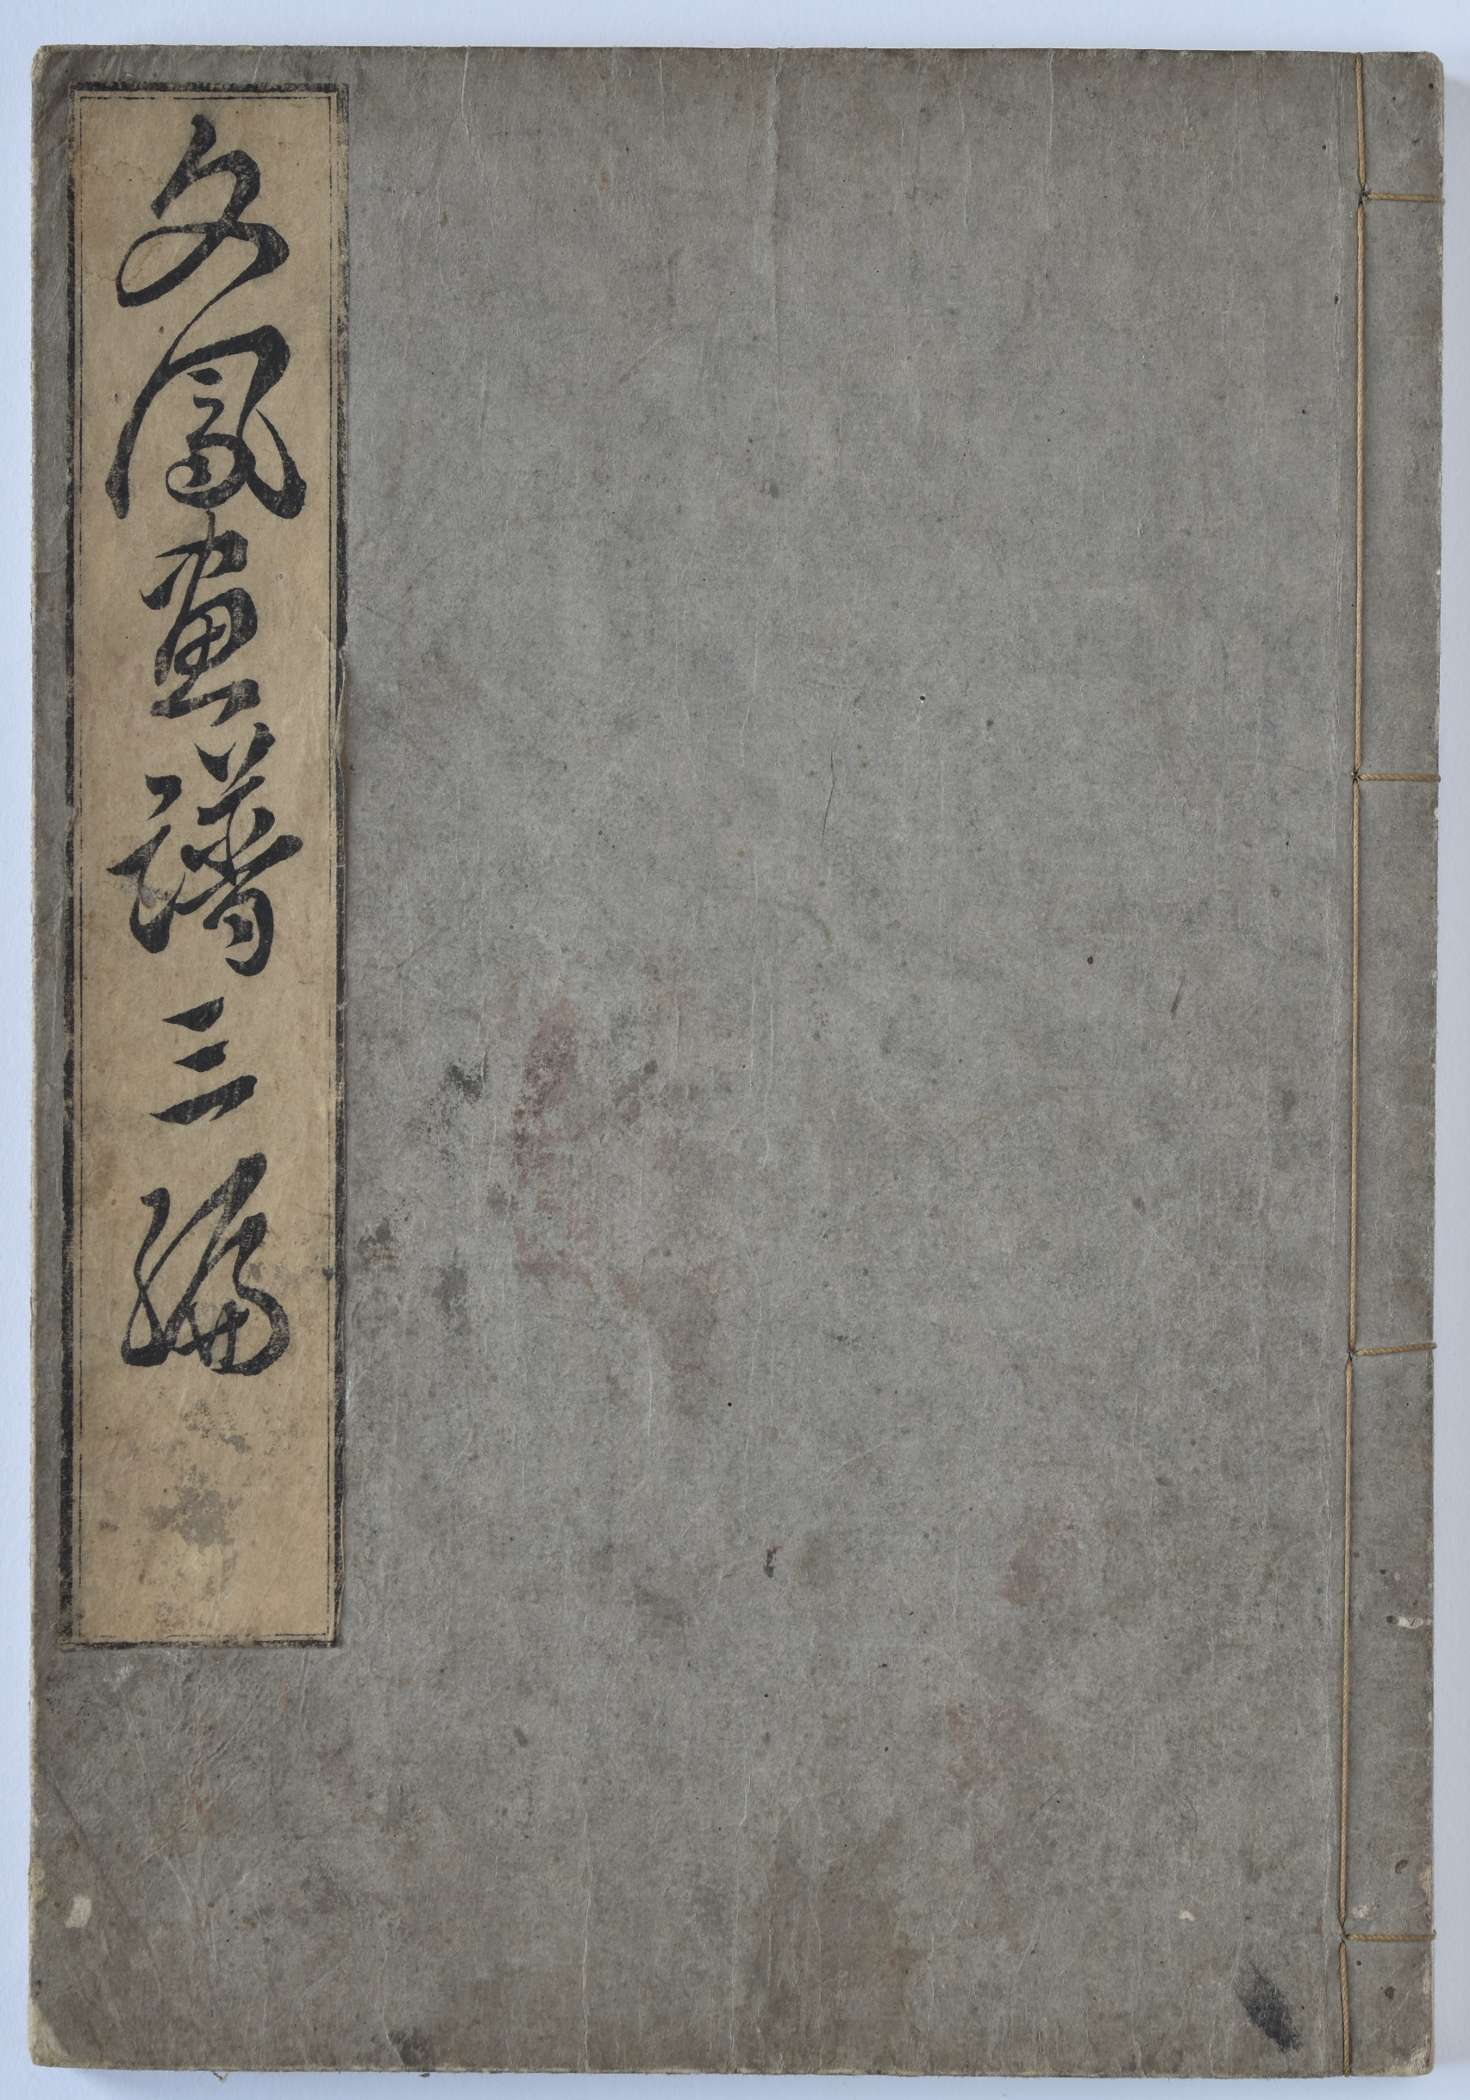 文鳳画譜三編